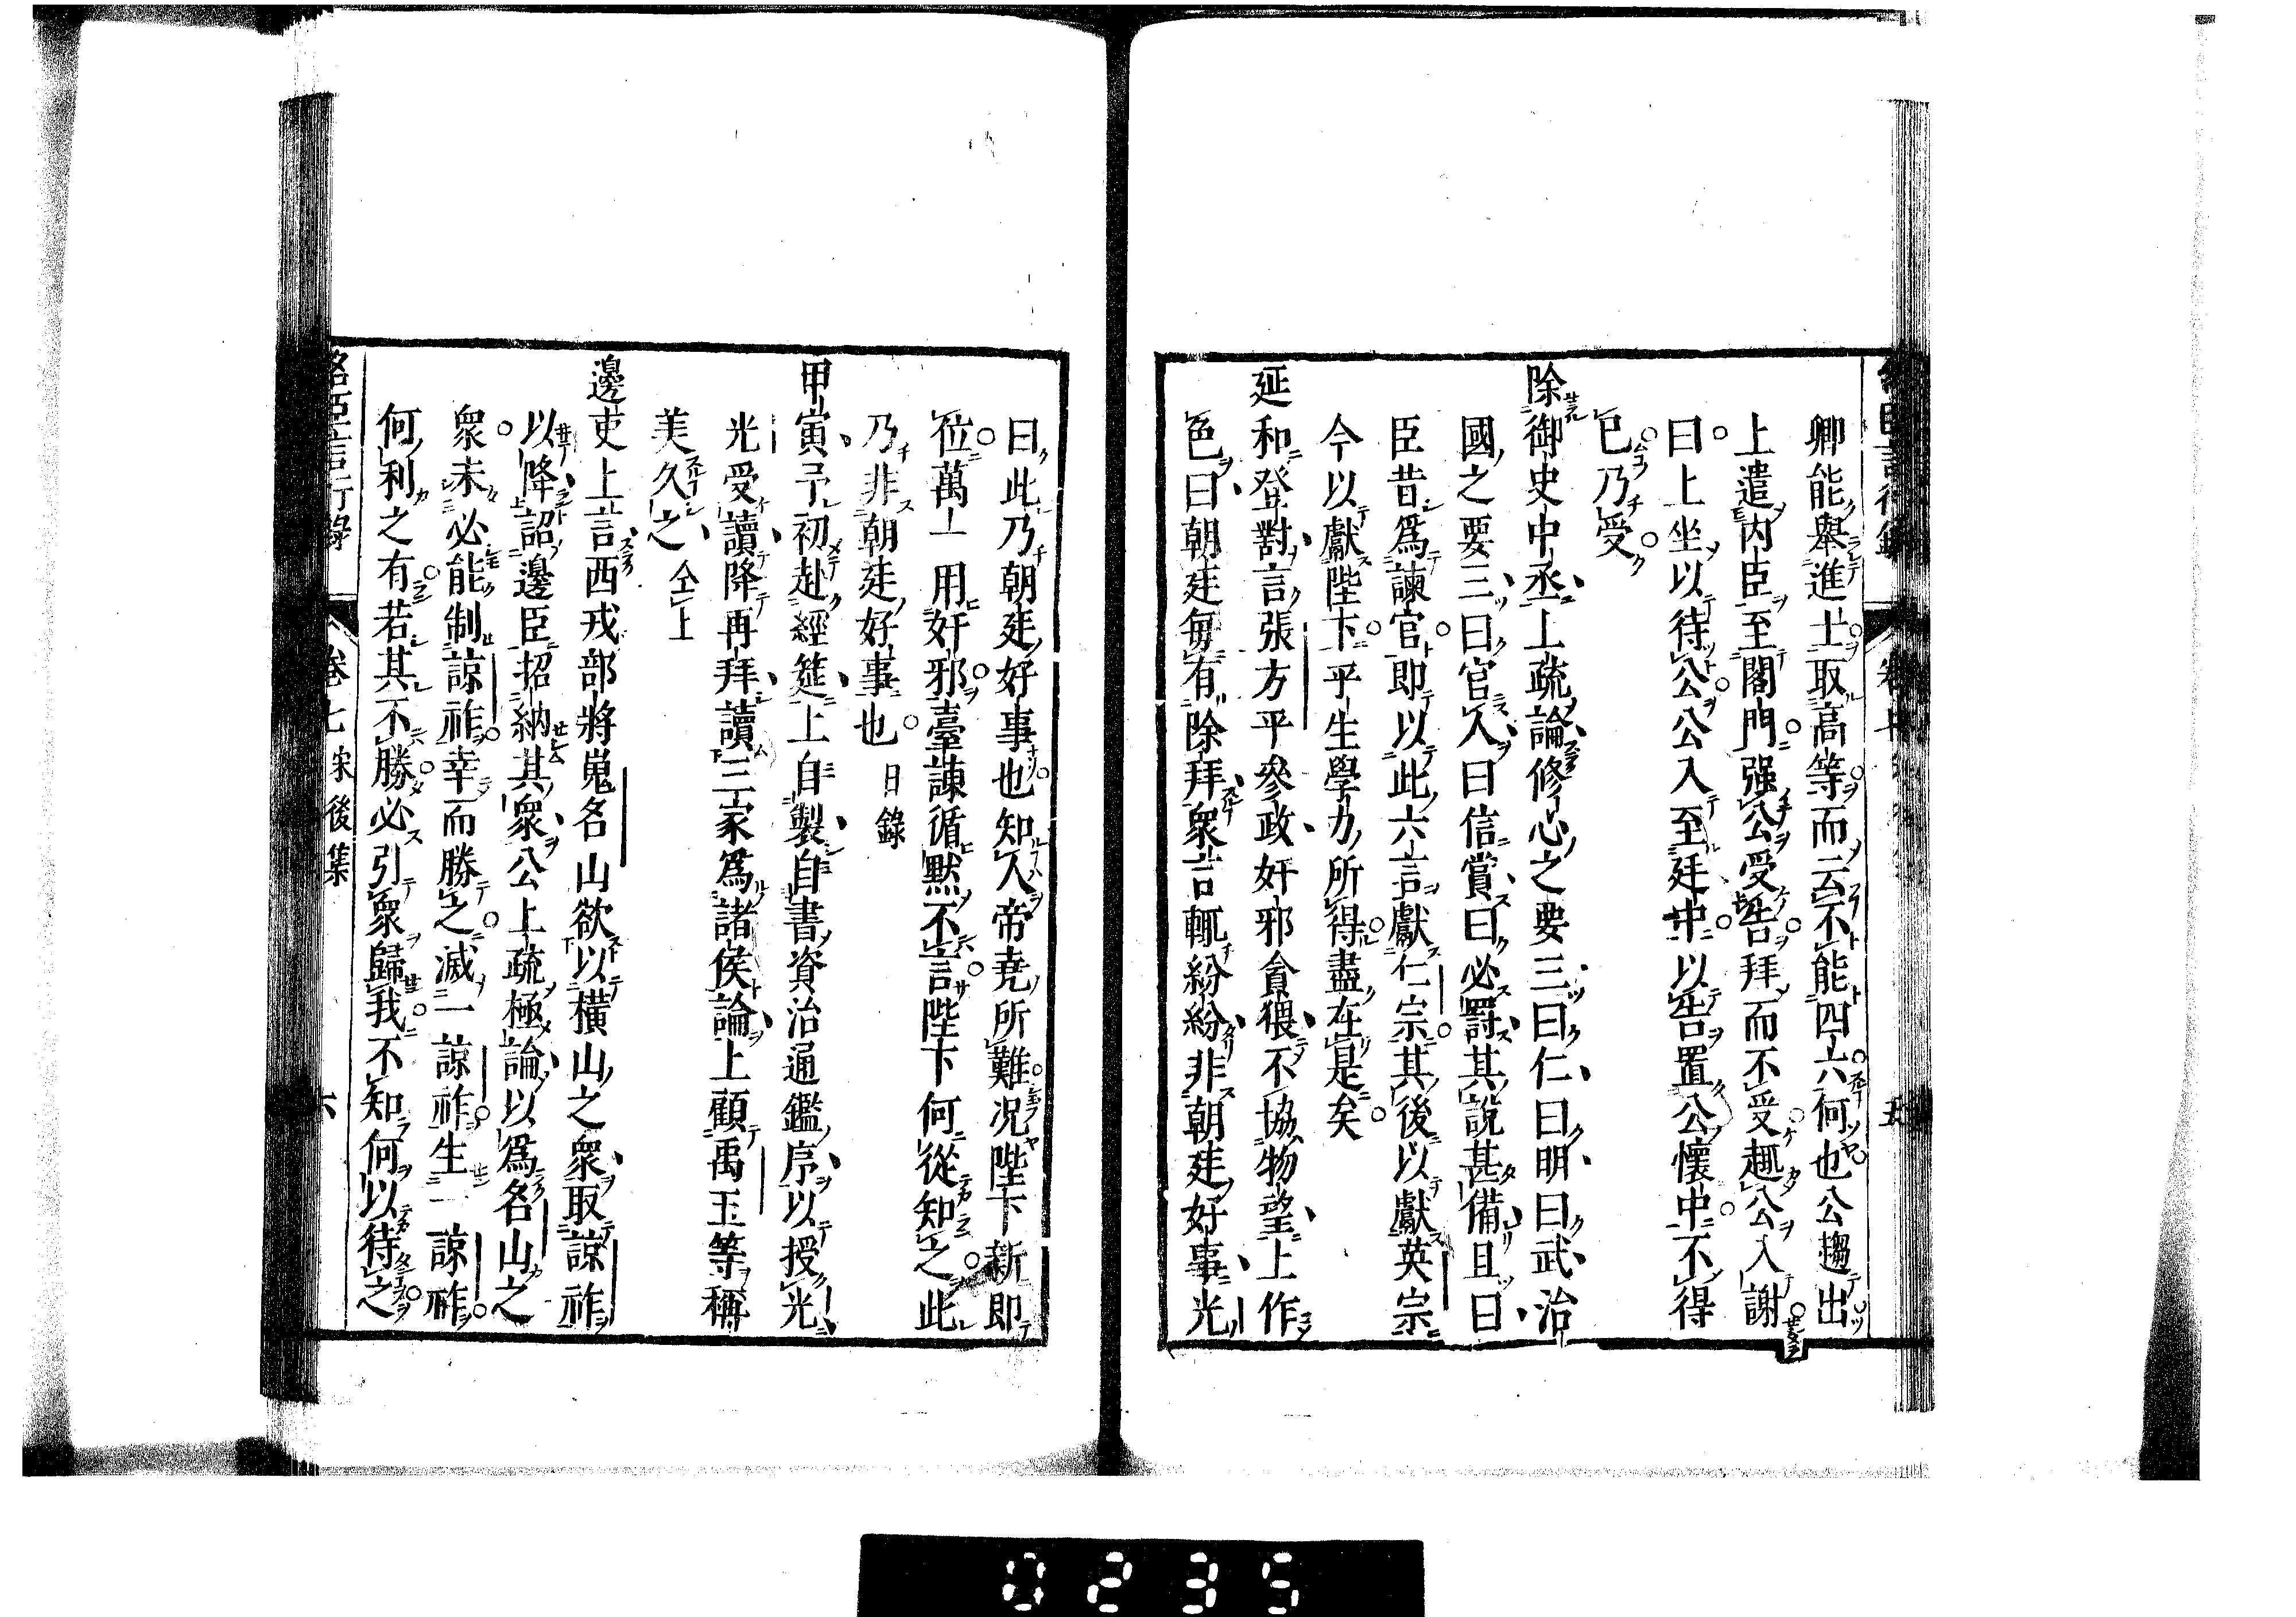 卿能舉進士取高等而云不能四六何也公趨出
上遣内臣至閤門强公受告拜而不受趣公入謝
曰上坐以待公公入至廷中以告置公懷中不得
已乃受
除御史中丞上疏論修心之要三曰仁曰明曰武治
國之要三曰官人曰信賞曰必罰其說甚備且曰
臣昔爲諫官即以此六言獻仁宗其後以獻英宗
今以獻陛下平生學力所得盡在是矣
延和登對言張方平參政奸邪貪猥不協物望上作
色曰朝廷每有除拜衆言輒紛紛非朝廷好事光
曰此乃朝廷好事也知人帝堯所難况陛下新即
位萬一用奸邪臺諫循默不言陛下何從知之此
乃非朝廷好事也 日錄
甲寅予初赴經筵上自製自書資治通鑑序以授光
光受讀降再拜讀三家爲諸侯論上顧禹玉等稱
美久之 仝上
邊吏上言西戎部將嵬名山欲以橫山之衆取諒祚
以降詔邊臣招納其衆公上疏極論以爲名山之
衆未必能制諒祚幸而勝之滅一諒祚生一諒祚
何利之有若其不勝必引衆歸我不知何以待之
名臣言行錄 卷七 宋後集 六
0235